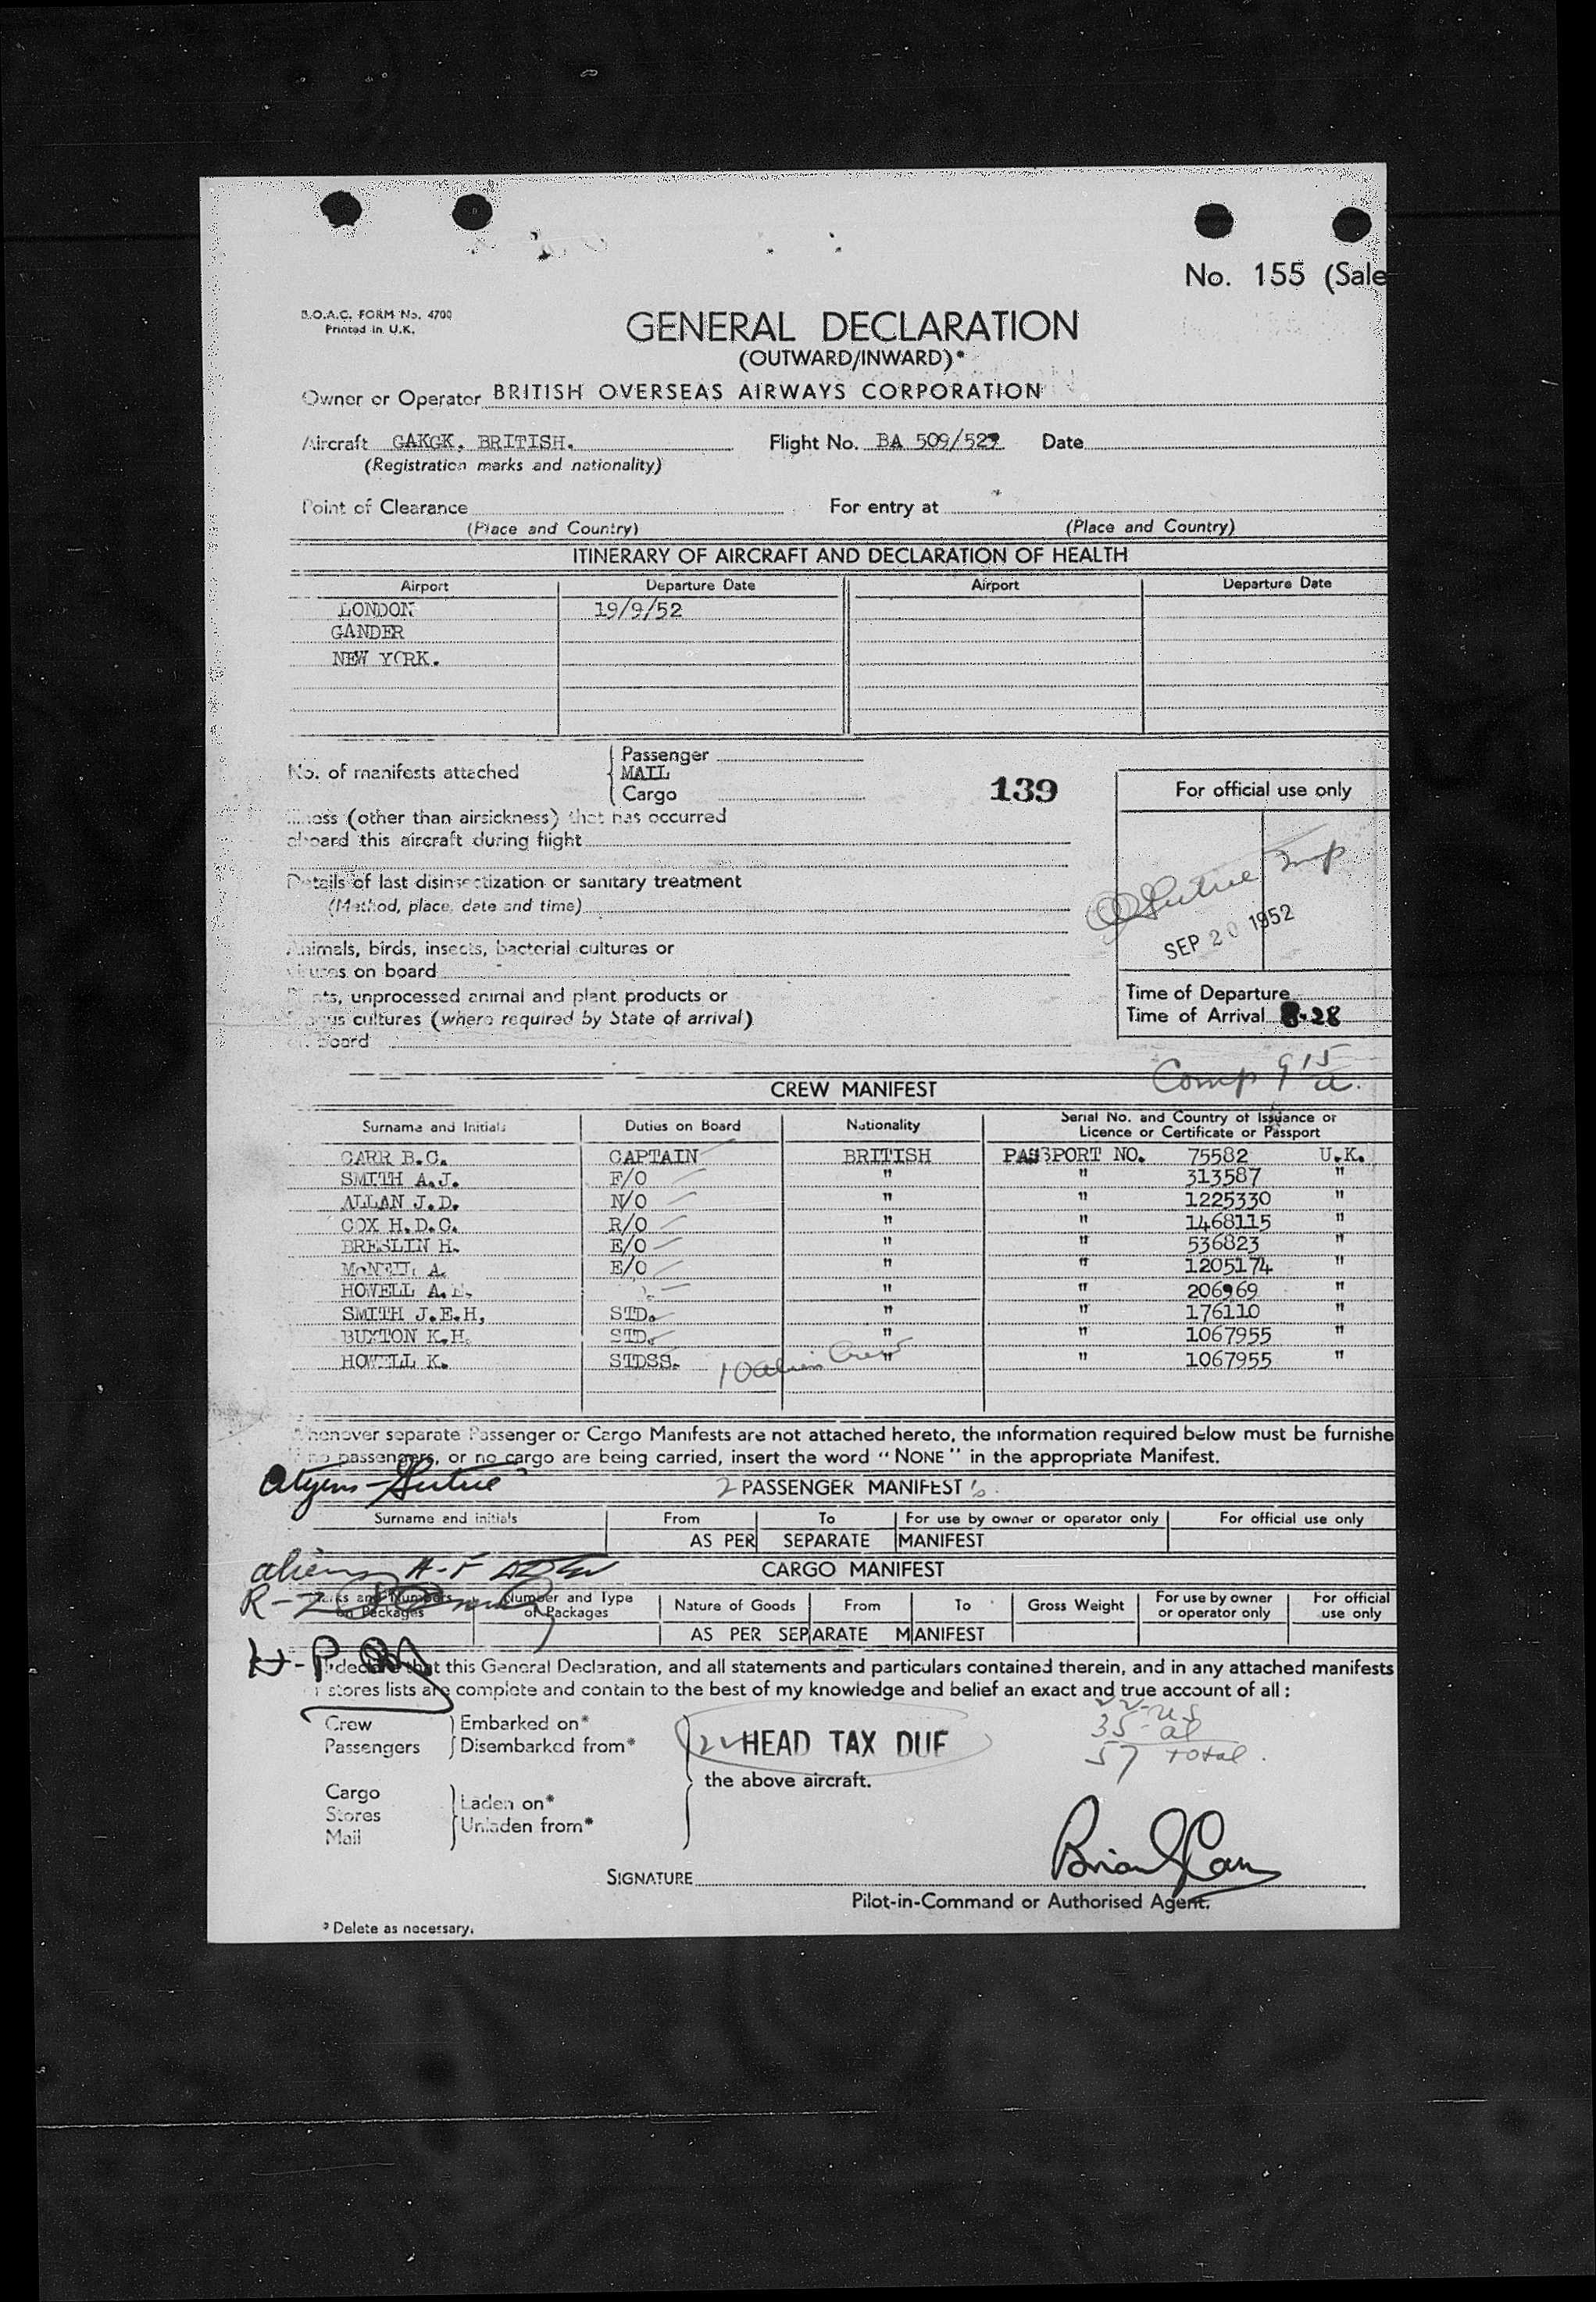 No. 155 (Sale
B.O.A.C. FORM No. 4700
Printed in U.K.
GENERAL DECLARATION
(OUTWARD/INWARD)*
Owner or Operator BRITISH OVERSEAS AIRWAYS CORPORATION
Aircraft GAKGK, BRITISH. Flight No. BA 509/529 Date
(Registration marks and nationality)
Point of Clearance For entry at
(Place and Country) (Place and Country)
ITINERARY OF AIRCRAFT AND DECLARATION OF HEALTH
Airport Departure Date Airport Departure Date
LONDON 19/9/52
GANDER
NEW YORK.
No. of manifests attached
Passenger
MAIL
Cargo
139
For official use only
(other than airsickness) that has occurred
aboard this aircraft during flight
Details of last disinsectization or sanitary treatment
(Method, place, date and time)
SEP 20 1952
Animals, birds, insects, bacterial cultures or
viruses on board
Plants, unprocessed animal and plant products or
cultures (where required by State of arrival)
on board
Time of Departure
Time of Arrival 8-28
Comp 9 15 a.
CREW MANIFEST
Surname and Initials Duties on Board Nationality Serial No. and Country of Issuance or
Licence or Certificate or Passport
CARR B.C. CAPTAIN BRITISH PASSPORT NO. 75582 U.K.
SMITH A.J. F/O " " 313587 "
ALLAN J.D. N/O " " 1225330 "
COX H.D.C. R/O " " 1468115 "
BRESLIN H. E/O " " 536823 "
McNEIL A. E/O " " 1205174 "
HOWELL A. " " 206969 "
SMITH J.E.H, STD. " " 176110 "
BUXTON K.H. STD. " " 1067955 "
HOWELL K. STDSS. " " 1067955 "
10 alien Crew
Whenever separate Passenger or Cargo Manifests are not attached hereto, the information required below must be furnishe
no passengers, or no cargo are being carried, insert the word "NONE" in the appropriate Manifest.
2 PASSENGER MANIFEST's
Surname and initials From To For use by owner or operator only For official use only
AS PER SEPARATE MANIFEST
aliens A-F
CARGO MANIFEST
R-Z
Marks and Numbers on Packages Number and Type of Packages Nature of Goods From To Gross Weight For use by owner or operator only For official use only
AS PER SEPARATE MANIFEST
H-P
I declare that this General Declaration, and all statements and particulars contained therein, and in any attached manifests
or stores lists are complete and contain to the best of my knowledge and belief an exact and true account of all:
22-US
35-al
57 total.
Crew
Passengers
Embarked on*
Disembarked from*
HEAD TAX DUE
the above aircraft.
Cargo
Stores
Mail
Laden on*
Unladen from*
SIGNATURE
Pilot-in-Command or Authorised Agent.
* Delete as necessary.